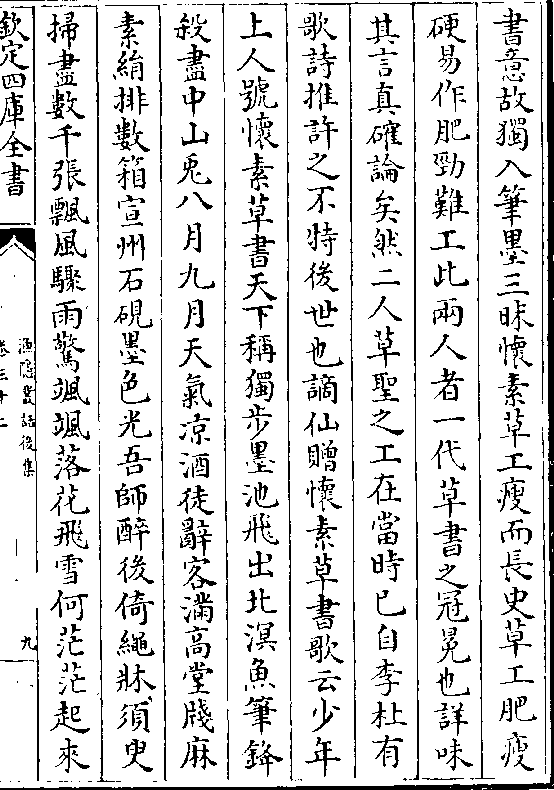 書意故獨入筆墨三昧懷素草工瘦而長史草工肥瘦
硬易作肥勁難工此兩人者一代草書之冠冕也詳味
其言真確論矣然二人草聖之工在當時已自李杜有
歌詩推許之不特後世也謫仙贈懷素草書歌云少年
上人號懷素草書天下稱獨步墨池飛出北溟魚筆鋒
殺盡中山兎八月九月天氣凉酒徒辭客滿高堂牋麻
素絹排數箱宣州石硯墨色光吾師醉後倚繩牀須臾
掃盡數千張飄風驟雨驚颯颯落花飛雪何茫茫起來
欽定四庫全書
漁隱叢話後集
卷三十二
九